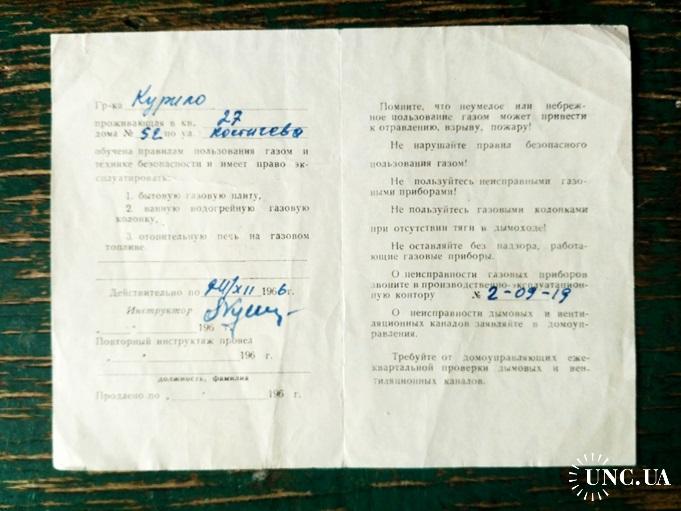 Гр-ка Курило
проживающая в кв. 27
дома № 52 по ул. Костычева
обучена правилам пользования газом и
технике безопасности и имеет право эк-
сплуатировать:
1. бытовую газовую плиту,
2. ванную водогрейную газовую
колонку,
3. отопительную печь на газовом
топливе.
Действительно по XII 1966г.
Инструктор
" " 196 г.
Повторный инструктаж провел
" " 196 г.
должность, фамилия
Продлено по " " 196 г.
Помните, что неумелое или небреж-
ное пользование газом может привести
к отравлению, взрыву, пожару!
Не нарушайте правил безопасного
пользования газом!
Не пользуйтесь неисправными газо-
выми приборами!
Не пользуйтесь газовыми колонками
при отсутствии тяги в дымоходе!
Не оставляйте без надзора, работа-
ющие газовые приборы.
О неисправности газовых приборов
звоните в производственно-эксплуатацион-
ную контору № 2-09-19
О неисправности дымовых и венти-
ляционных каналов заявляйте в домоуп-
равления.
Требуйте от домоуправляющих еже-
квартальной проверки дымовых и вен-
тиляционных каналов.
UNC.UA